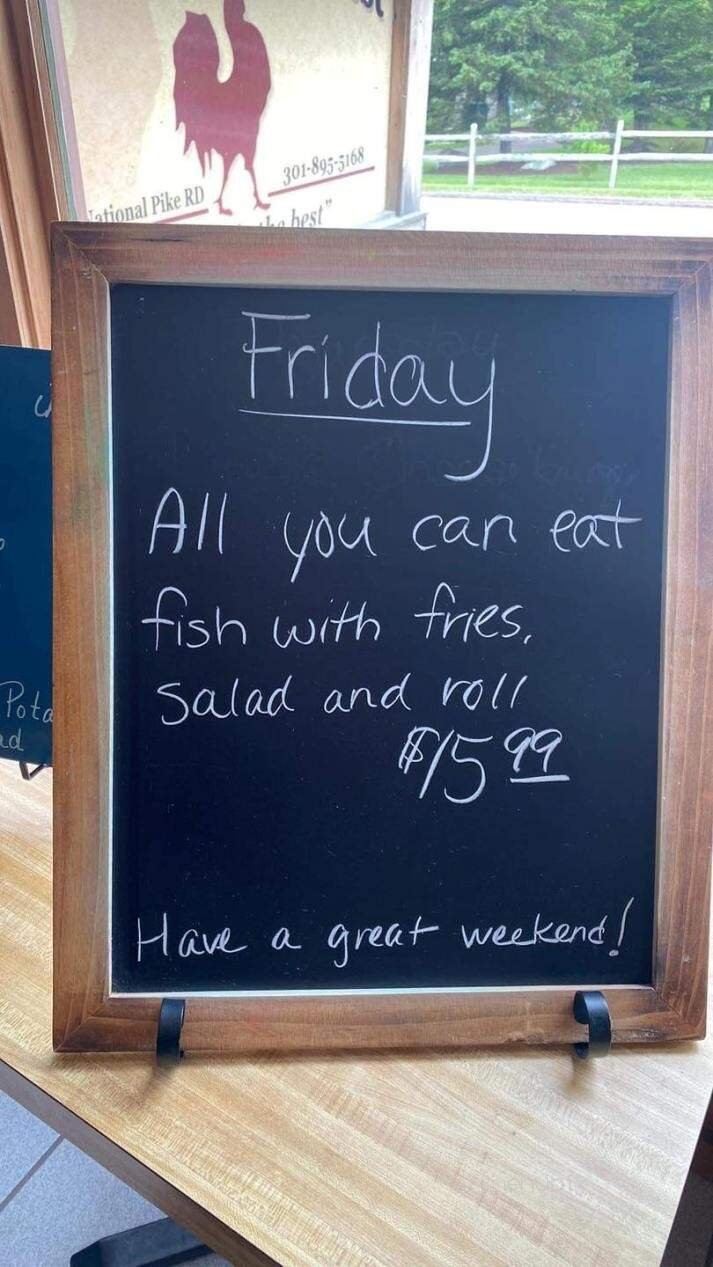 301-895-5168
Pike RD
best"
Friday
All you can eat
fish with fries,
salad and roll
$15 99
Have a great weekend!